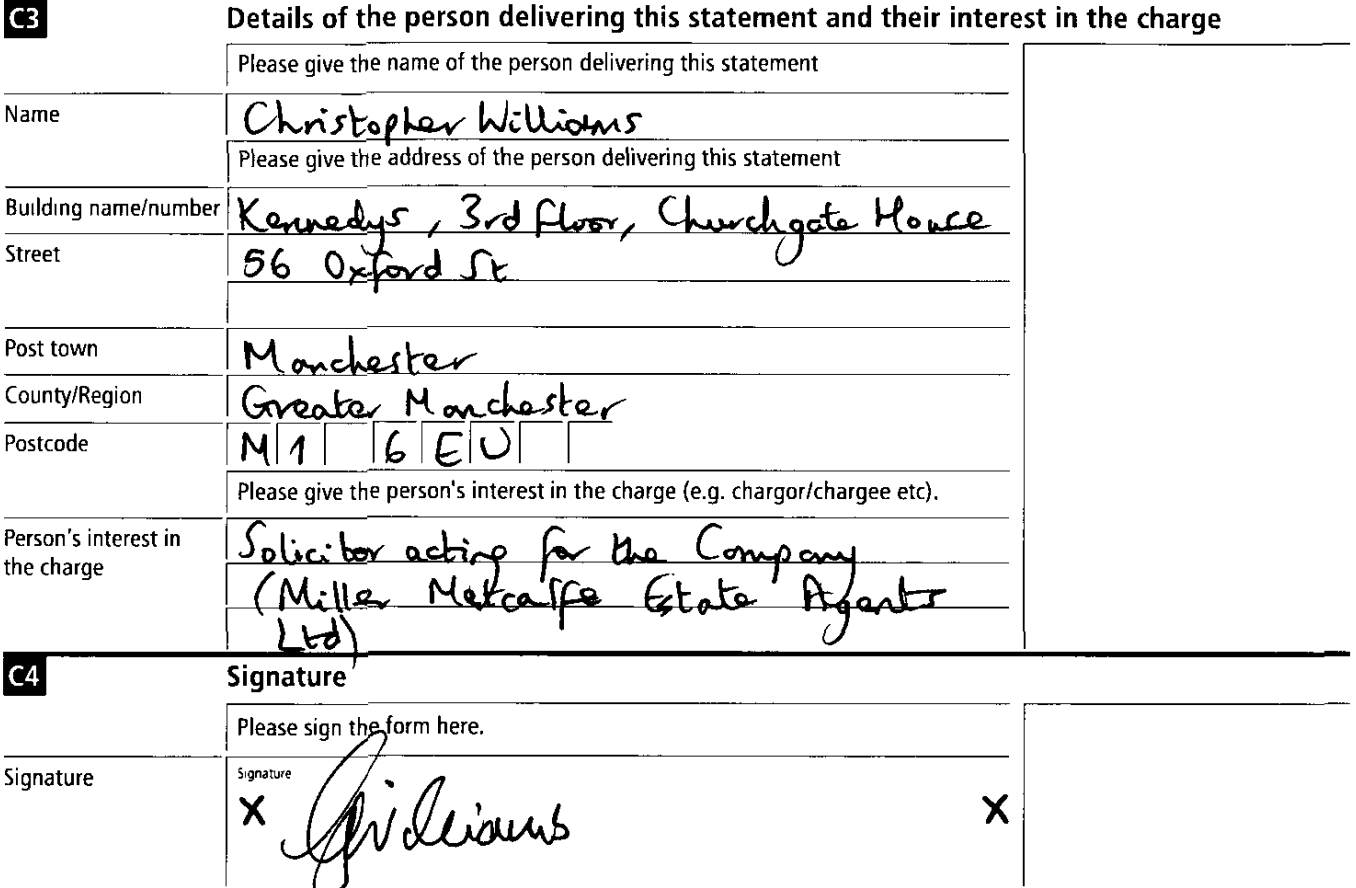 C3 Details of the person delivering this statement and their interest in the charge
Please give the name of the person delivering this statement
Name Christopher Williams
Please give the address of the person delivering this statement
Building name/number Kennedys, 3rd Floor, Churchgate House
Street 56 Oxford St
Post town Manchester
County/Region Greater Manchester
Postcode M1 6EU
Please give the person's interest in the charge (e.g. chargor/chargee etc).
Person's interest in Solicitor acting for the Company
the charge (Miller Metcalfe Estate Agents
Ltd)
C4 Signature
Please sign the form here.
Signature Signature
X CWilliams X